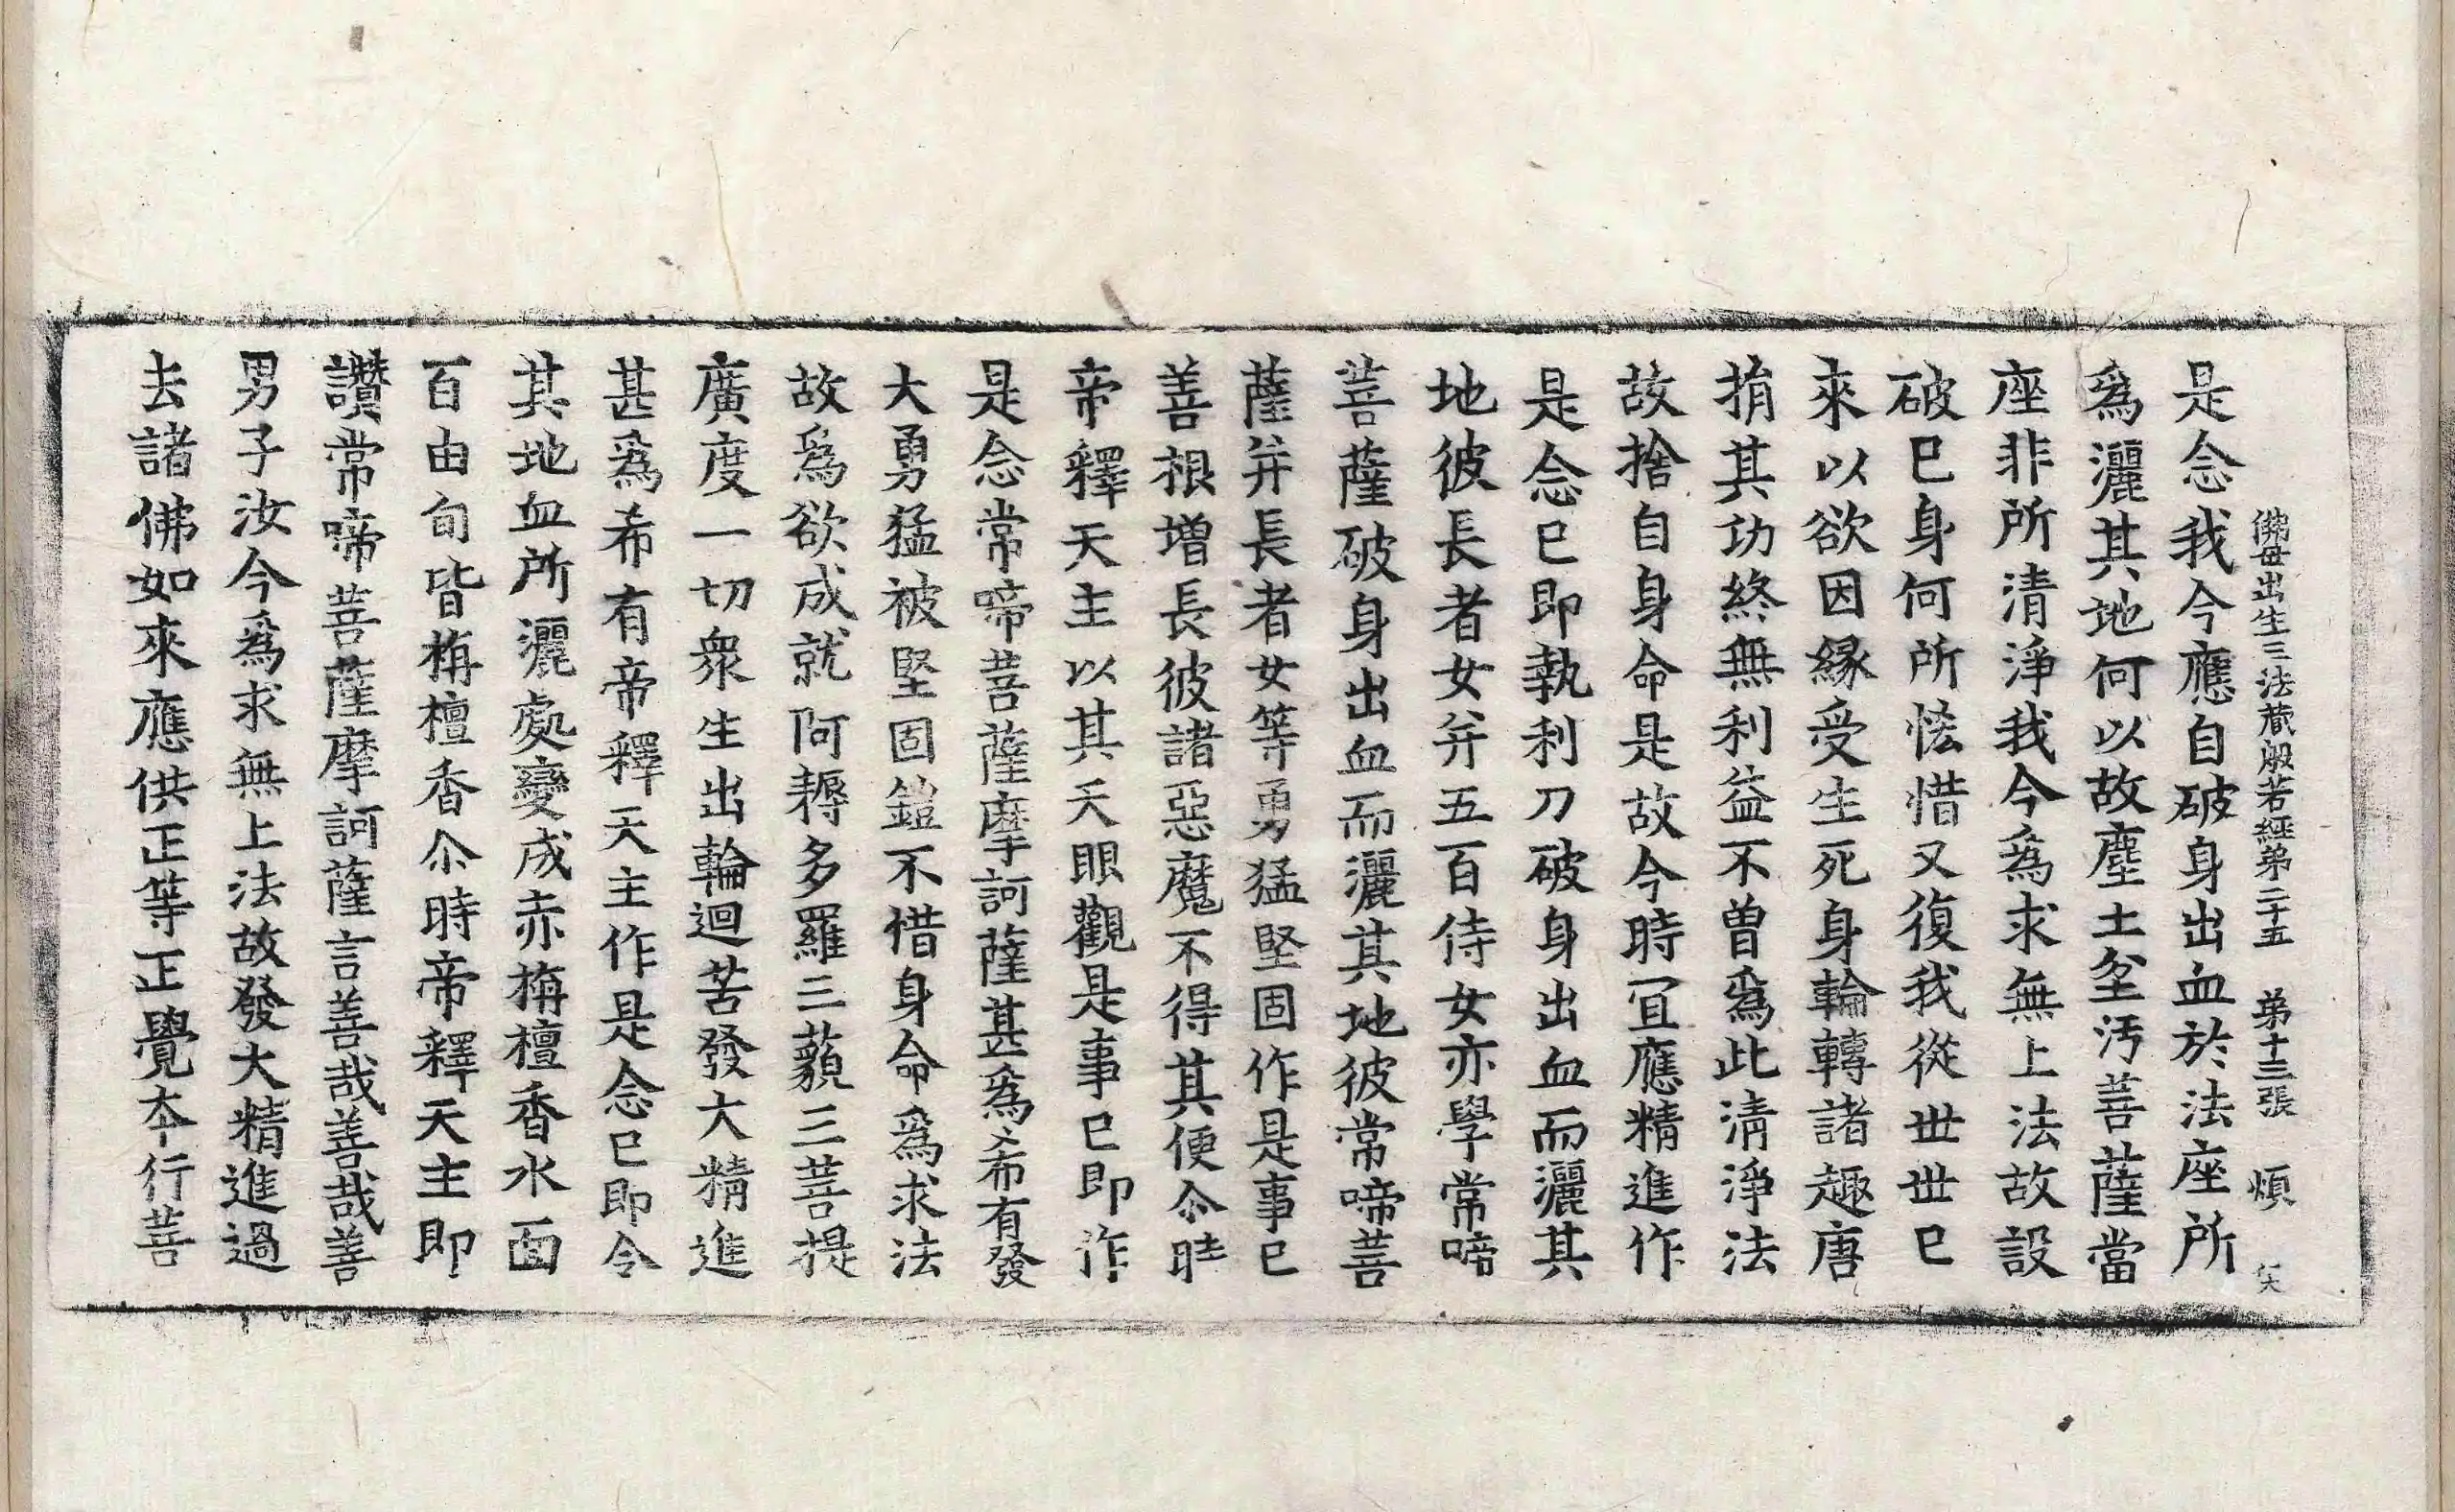 佛母出生三法藏般若經第二十五　第十三張　煩
是念我今應自破身出血於法座所
爲灑其地何以故塵土坌汚菩薩當
座非所清淨我今爲求無上法故設
破巳身何所恡惜又復我從世世巳
來以欲因緣受生死身輪轉諸趣唐
捐其功終無利益不曾爲此清淨法
故捨自身命是故今時冝應精進作
是念巳即執利刀破身出血而灑其
地彼長者女并五百侍女亦學常啼
菩薩破身出血而灑其地彼常啼菩
薩并長者女等勇猛堅固作是事巳
善根增長彼諸惡魔不得其便尒時
帝釋天主以其天眼觀是事巳即作
是念常啼菩薩摩訶薩甚爲希有發
大勇猛被堅固鎧不惜身命爲求法
故爲欲成就阿耨多羅三藐三菩提
廣度一切衆生出輪迴苦發大精進
甚爲希有帝釋天主作是念巳即令
其地血所灑處變成赤栴檀香水面
百由旬皆栴檀香尒時帝釋天主即
讚常啼菩薩摩訶薩言善哉善哉善
男子汝今爲求無上法故發大精進過
去諸佛如來應供正等正覺本行菩